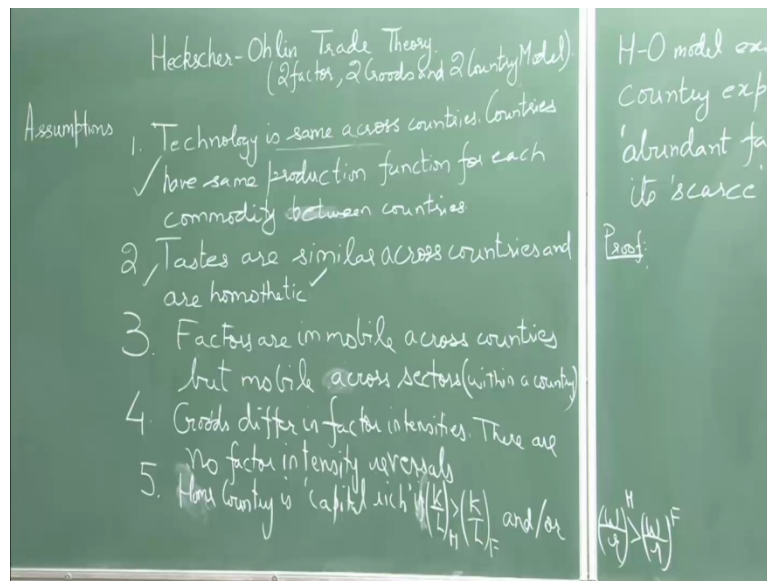 Heckscher-Ohlin Trade Theory.
(2factor, 2Goods and 2CountryModel).
Assumptions 1. Technology is same across countries. Countries
have same production function for each
commodity between countries
2, Tastes are similar across countries and
are homothetic
3. Factors are immobile across countries
but mobile across sectors (within a country)
4 Goods differ in factor intensities. There are
No factor intensity reversals
5. Home Country is 'capital rich' if (K/L)_H > (K/L)_F and/or (w/r)^H > (w/r)^F
H-O model ex
country exp
'abundant fa
its 'scarce'
Proof: